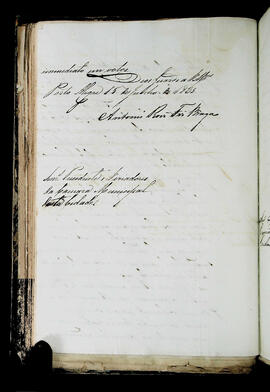 immediato um voto. Deus Guarde a VSas
Porto Alegre 15 de Julho de
Antonio Roiz Fer Braga
Senr. Presidente e Vereadores
da Camara Municipal
desta Cidade.